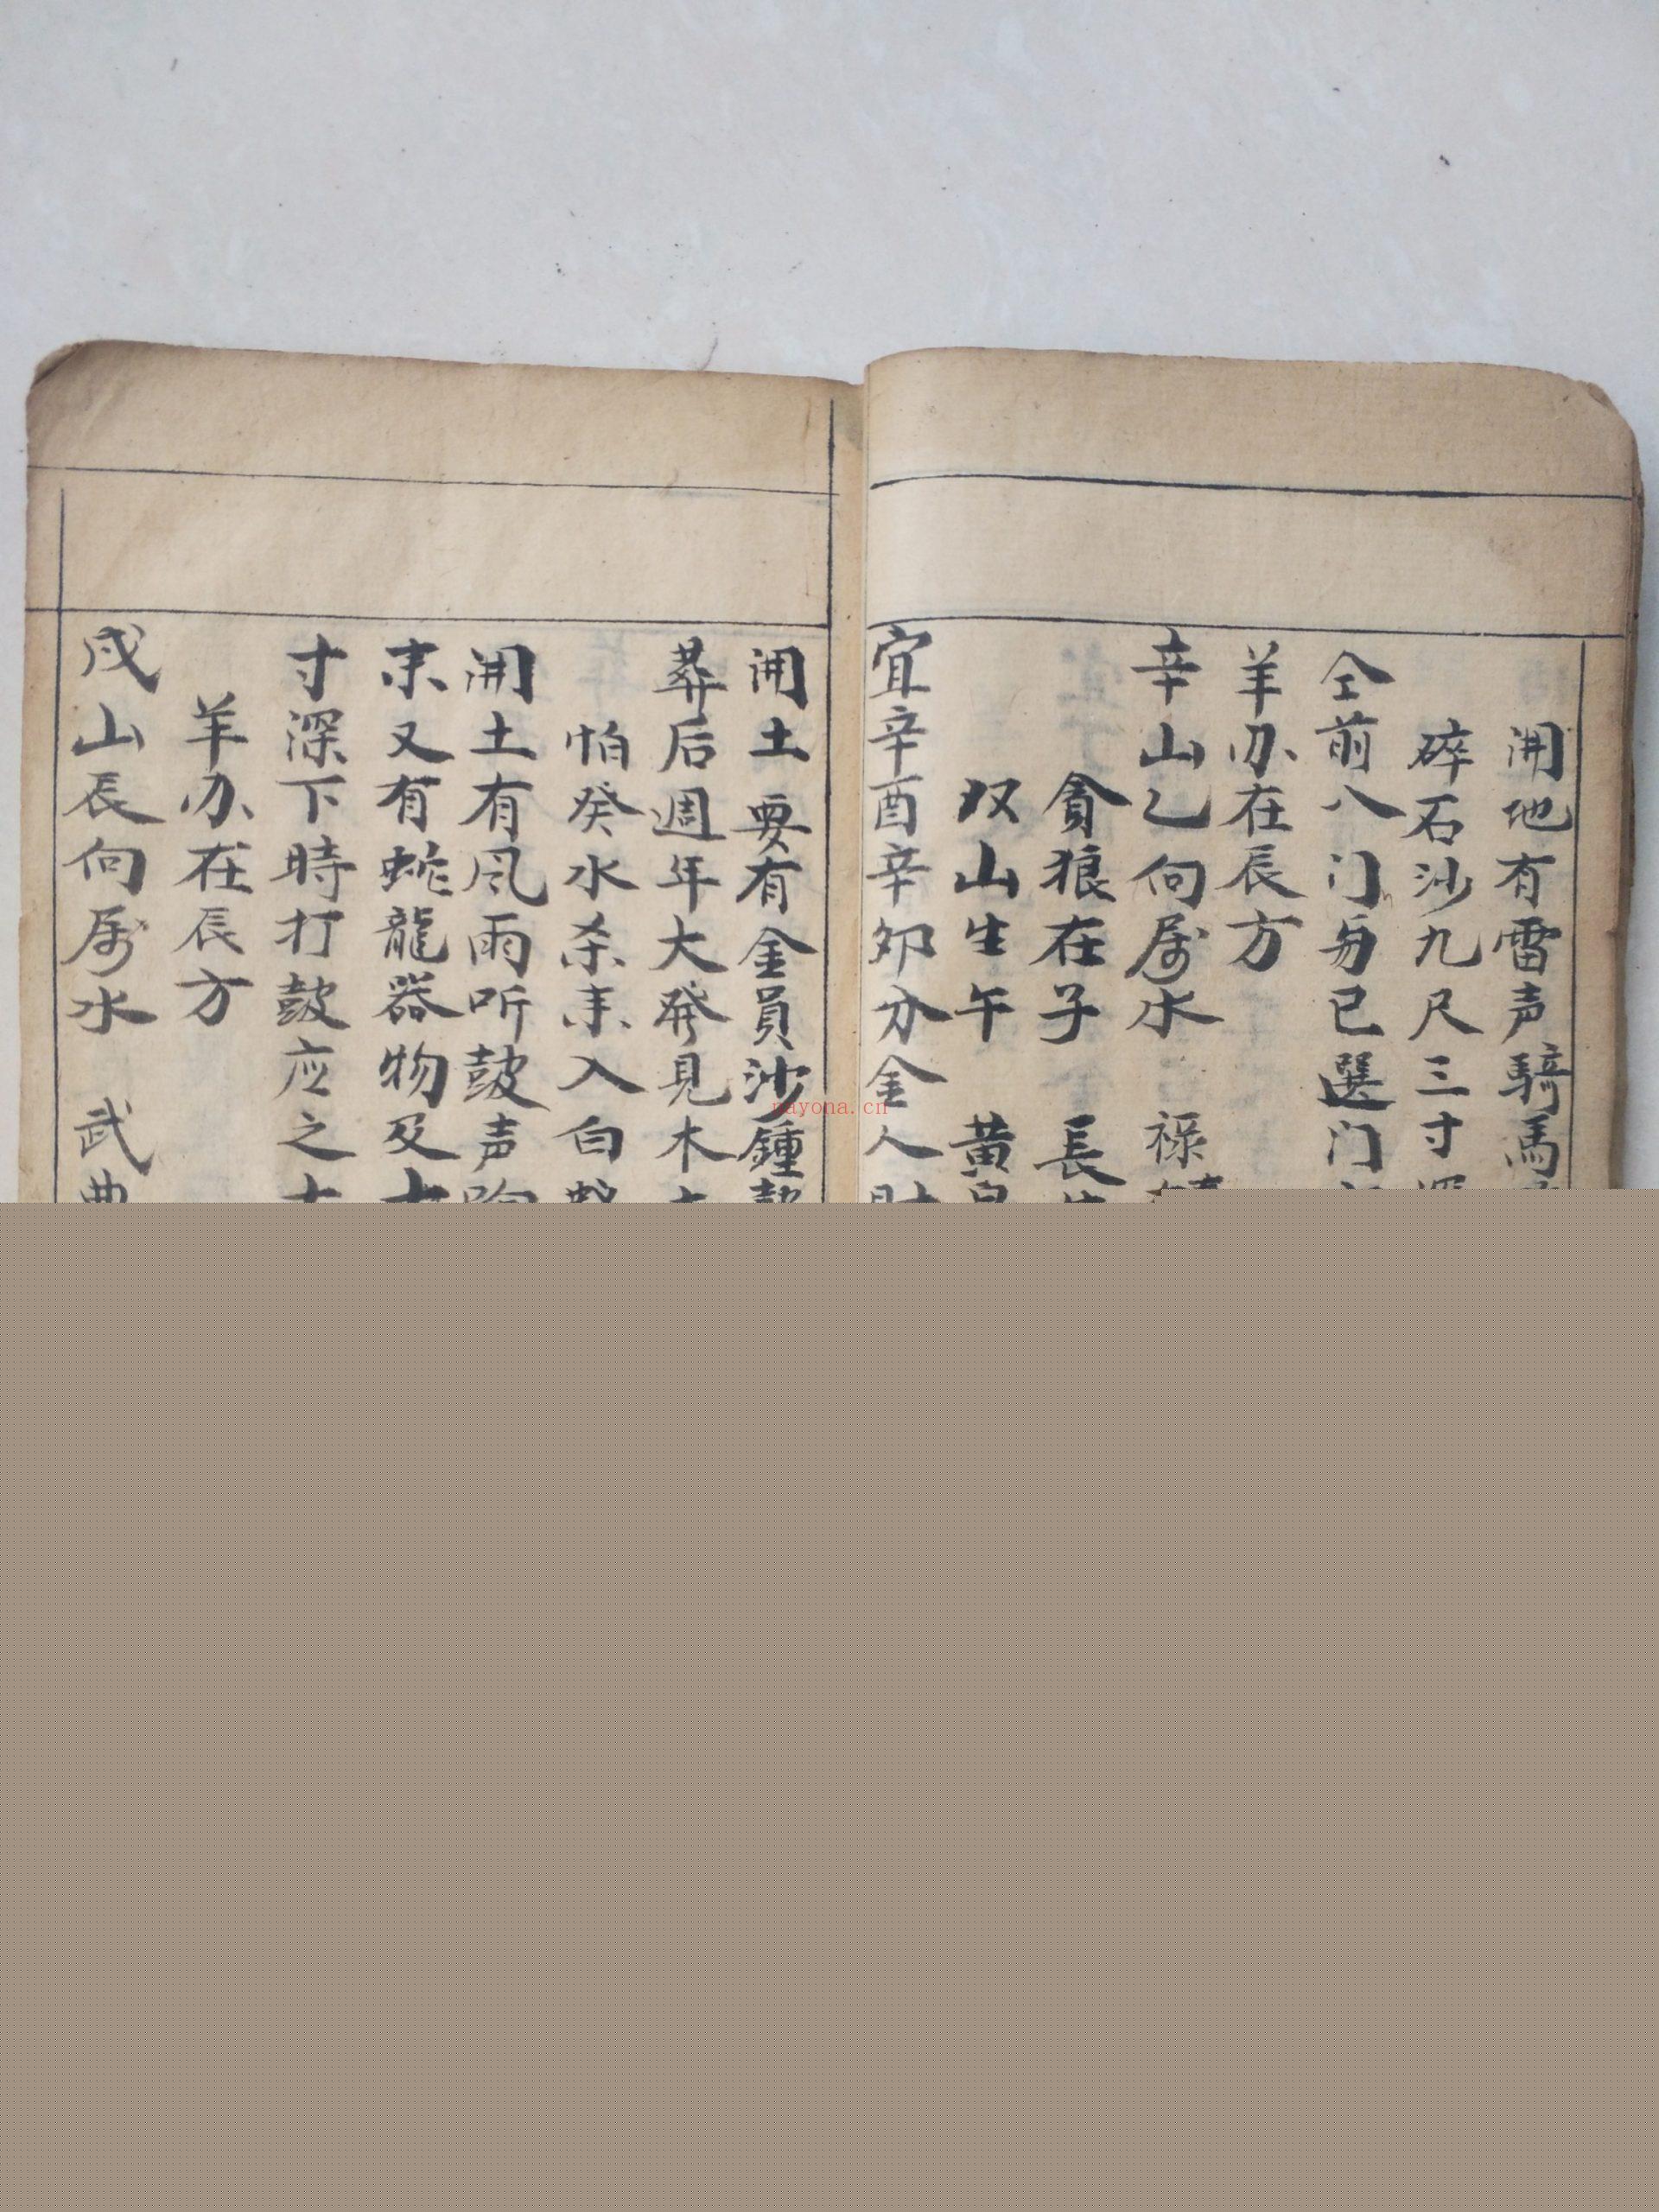 開地有雷声騎馬
碎石沙九尺三寸深
仝前八门另已選门
羊刃在辰方
辛山乙向属水 禄
貪狼在子 長
双山生午 黃泉
宜辛酉辛卯分金人財
開土要有金員沙鍾
葬后週年大発見木
怕癸水杀耒入白
開土有风雨听鼓声
耒又有蛇龍器物及
寸深下時打鼓应之
羊刃在辰方
戍山辰向属水 武曲
nayona.cn